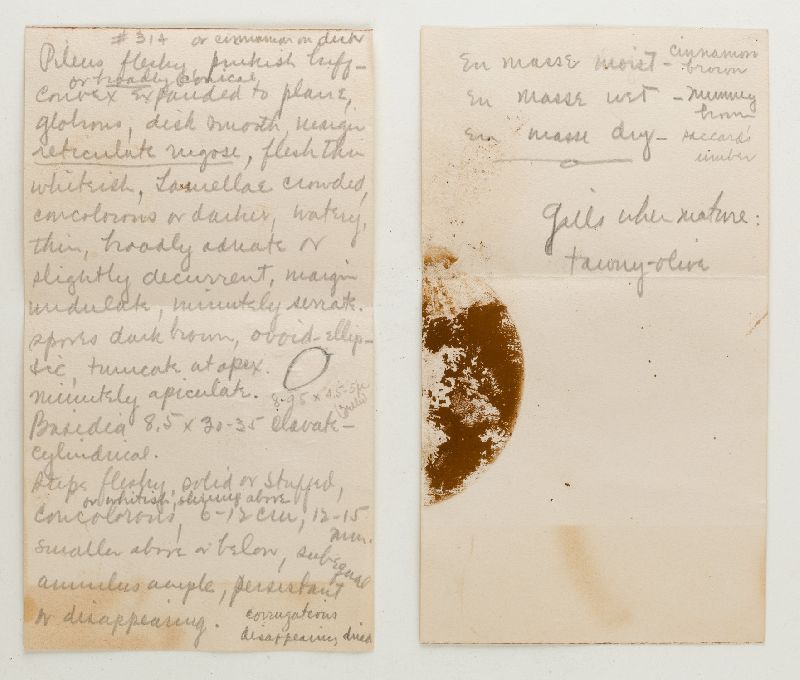 #314 or cinnamon on disk
Pileus fleshy, pinkish buff-
or broadly conical,
convex expanded to plane,
glabrous, disk smooth, margin
reticulate rugose, flesh thin
whiteish, Lamellae crowded,
concolorous or darker, watery,
thin, broadly adnate or
slightly decurrent, margin
undulate, minutely serrate.
spores dark brown, ovoid-ellip-
tic, truncate at apex.
minutely apiculate. 8-9.5 x 4.5-5µ
Basidia 8.5 x 30-35 clavate-
cylindrical.
Stipe fleshy, solid or stuffed,
or whitish, shining above
concolorous, 6-12 cm, 12-15
mm.
smaller above or below, subequal
annulus ample, persistant
or disappearing. corrugations
disappearing dried
En masse moist - cinnamon
brown
En masse wet - mummy
brown
En masse dry - saccardo's
umber
Gills when mature:
tawny-olive